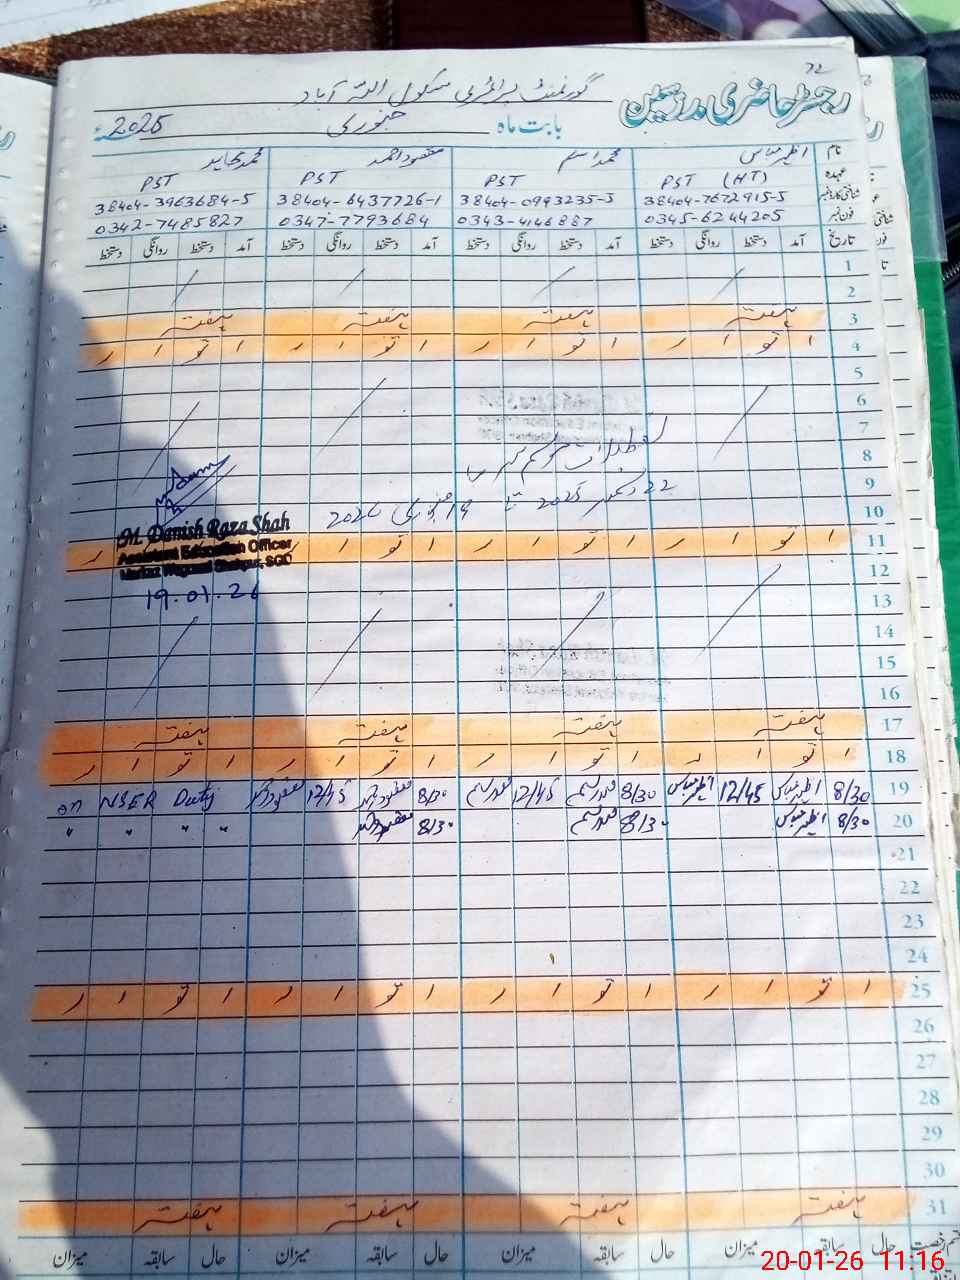 72
رجسٹر حاضری مدرسین
گورنمنٹ پرائمری سکول اللہ آباد
بابت ماہ جنوری 2025ء
نام اظہر عباس محمد اسلم مقصود احمد محمد مجاہد
عہدہ PST (HT) PST PST PST
شناختی کارڈ نمبر 38404-7672915-5 38404-0993235-5 38404-6437726-1 38404-3963684-5
فون نمبر 0345-6244205 0343-4146887 0347-7793684 0342-7485827
تاریخ آمد دستخط روانگی دستخط آمد دستخط روانگی دستخط آمد دستخط روانگی دستخط آمد دستخط روانگی دستخط
1
2
3 ہفتہ ہفتہ ہفتہ ہفتہ
4 ا تو ا ر ا تو ا ر ا تو ا ر ا تو ا ر
5
6
7
8 تعطیلات موسم سرما
9 22 دسمبر 2025 تا 19 جنوری 2026
10
M. Danish Raza Shah
11 ا تو ا ر ا تو ا ر ا تو ا ر ا تو ا ر
Assistant Education Officer
12
19.01.26
13
14
15
16
17 ہفتہ ہفتہ ہفتہ ہفتہ
18 ا تو ا ر ا تو ا ر ا تو ا ر ا تو ا ر
19 8/30 اظہر عباس 12/45 اظہر عباس 8/30 محمد اسلم 12/45 محمد اسلم 8/30 مقصود احمد 12/45 مقصود احمد on NSER Duty
20 8/30 اظہر عباس 8/30 محمد اسلم 8/30 مقصود احمد " " " "
21
22
23
24
25 ا تو ا ر ا تو ا ر ا تو ا ر ا تو ا ر
26
27
28
29
30
31 ہفتہ ہفتہ ہفتہ ہفتہ
قسم رخصت حال سابقہ میزان حال سابقہ میزان حال سابقہ میزان حال سابقہ میزان
20-01-26 11:16